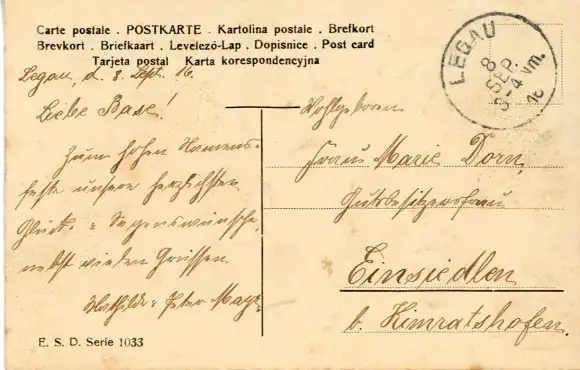 Carte postale . POSTKARTE . Kartolina postale . Brefkort
Brevkort . Briefkaart . Levelező-Lap . Dopisnice . Post card
Tarjeta postal Karta korespondencyjna
LEGAU
8 SEP.
3-4 Vm.
16
Legau, d. 8. Sept. 16.
Liebe Base!
Zum hohen Namens-
feste unsere herzlichsten
Glück- u Segenswünsche,
nebst vielen Grüssen
Mathilde u Peter Mayr
Wohlgeboren
Frau Marie Dorn,
Gutsbesitzersfrau
Einsiedlen
b. Kimratshofen.
E. S. D. Serie 1033